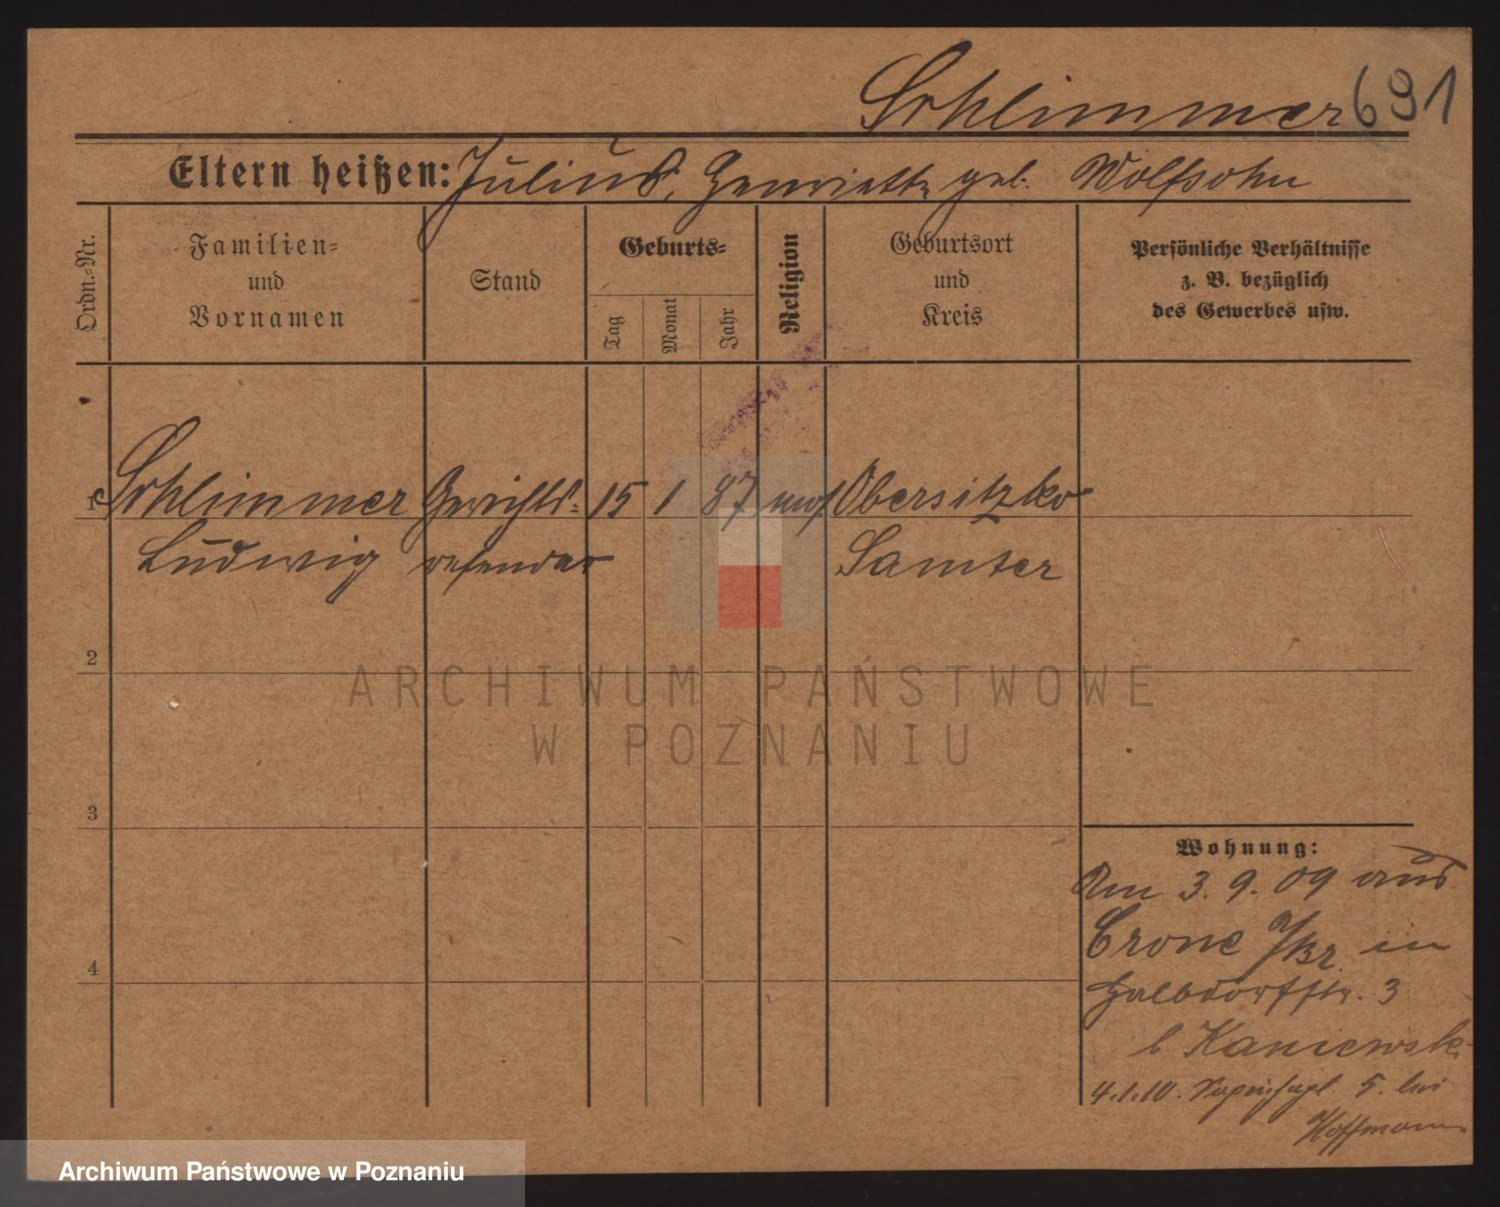 Schlimmer 691
Eltern heißen: Julius, Henriette geb. Wolfsohn
Ordn.=Nr.
Familien=
und
Vornamen
Stand
Geburts=
Tag
Monat
Jahr
Religion
Geburtsort
und
Kreis
Persönliche Verhältnisse
z. B. bezüglich
des Gewerbes usw.
1 Schlimmer Gerichts= 15 1 87 mos Obersitzko
Ludwig referendar Samter
2
3
4
Wohnung:
Am 3. 9. 09 aus
Crone /Br. in
Halbdorfstr. 3
b Kaniewski
4.1.10. 5. bei
Hoffmann
ARCHIWUM PAŃSTWOWE
W POZNANIU
Archiwum Państwowe w Poznaniu